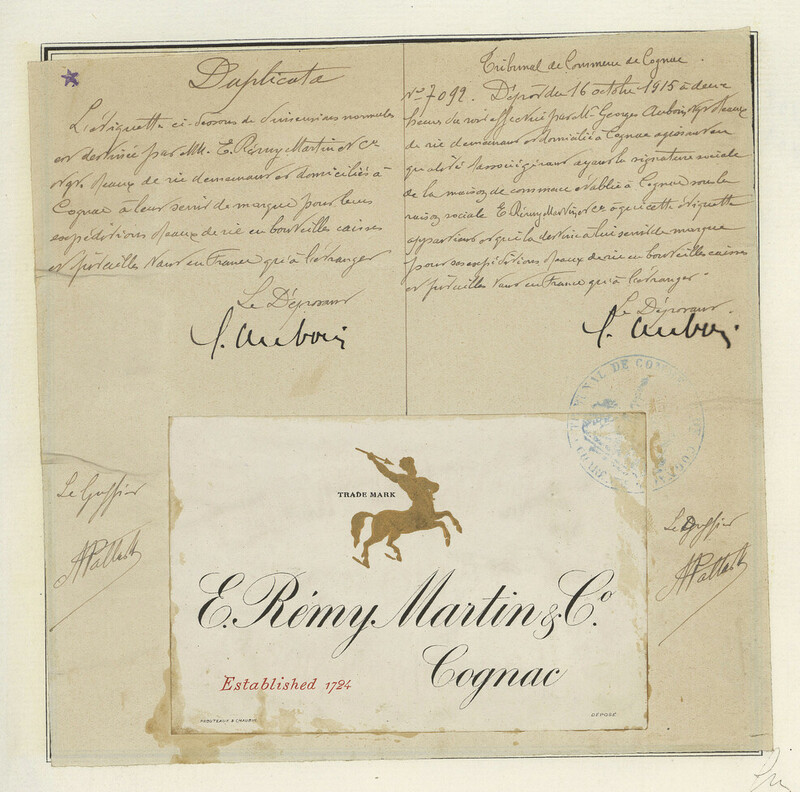 Duplicata
L'étiquette ci-dessous de dimensions normales
est destinée par MM. E. Rémy Martin et Cie
Ngts d'eaux de vie demeurant et domiciliés à
Cognac à leur servir de marque pour leurs
expéditions d'eaux de vie en bouteilles caisses
et futailles tant en France qu'à l'étranger
Le Déposant
G. Auboin
Tribunal de Commerce de Cognac.
No 7092. Dépôt du 16 octobre 1915 à deux
heures du soir effectué par Mr Georges Auboin, Ngt d'eaux
de vie demeurant et domicilié à Cognac agissant en
qualité d'associé gérant ayant la signature sociale
de la maison de commerce établie à Cognac sous la
raison sociale E. Rémy Martin et Cie à qui cette étiquette
appartient et qui la destine à lui servir de marque
pour ses expéditions d'eaux de vie en bouteilles caisses
et futailles tant en France qu'à l'étranger.
Le Déposant.
G. Auboin
TRIBUNAL DE COMMERCE DE COGNAC
Le Greffier
Le Greffier
TRADE MARK
E. Rémy Martin & Co.
Cognac
Established 1724
DÉPOSÉ